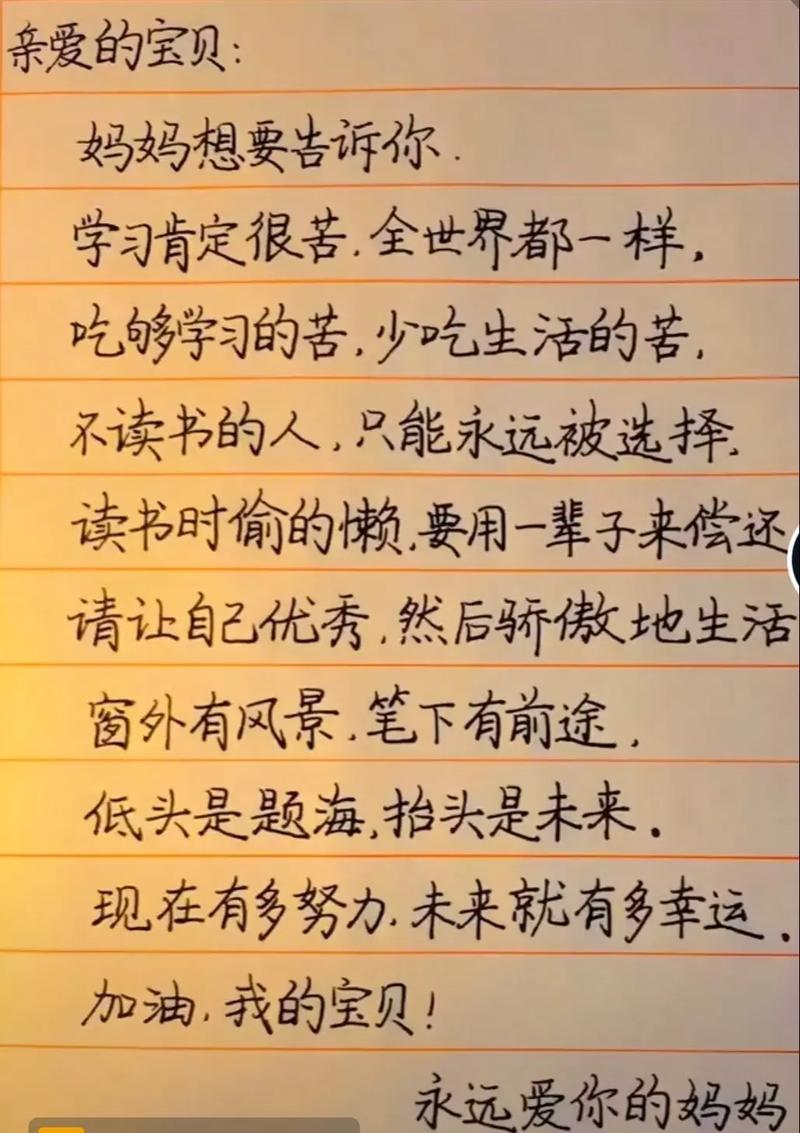 亲爱的宝贝:
妈妈想要告诉你.
学习肯定很苦,全世界都一样.
吃够学习的苦,少吃生活的苦,
不读书的人,只能永远被选择.
读书时偷的懒,要用一辈子来偿还
请让自己优秀,然后骄傲地生活
窗外有风景,笔下有前途,
低头是题海,抬头是未来.
现在有多努力,未来就有多幸运.
加油,我的宝贝!
永远爱你的妈妈